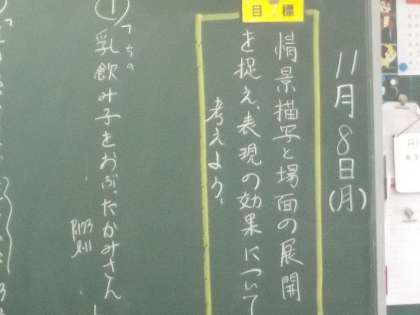 11月8日(月)
目標
情景描写と場面の展開
を捉え、表現の効果について
考えよう。
①
乳飲み子をおぶったかみさん